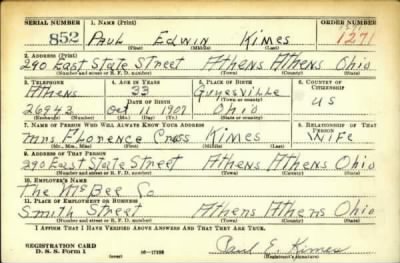 SERIAL NUMBER 1. NAME (Print) ORDER NUMBER
852 Paul Edwin Kimes 1271
(First) (Middle) (Last)
2. ADDRESS (Print)
290 East State Street Athens Athens Ohio
(Number and street or R. F. D. number) (Town) (County) (State)
3. TELEPHONE 4. AGE IN YEARS 5. PLACE OF BIRTH 6. COUNTRY OF CITIZENSHIP
Athens 33 Guysville
DATE OF BIRTH (Town or county)
26942 Oct 11 1907 Ohio U S
(Exchange) (Number) (Mo.) (Day) (Yr.) (State or country)
7. NAME OF PERSON WHO WILL ALWAYS KNOW YOUR ADDRESS 8. RELATIONSHIP OF THAT PERSON
Mrs Florence Cross Kimes Wife
(Mr., Mrs., Miss) (First) (Middle) (Last)
9. ADDRESS OF THAT PERSON
290 East State Street Athens Athens Ohio
(Number and street or R. F. D. number) (Town) (County) (State)
10. EMPLOYER'S NAME
The McBee Co
11. PLACE OF EMPLOYMENT OR BUSINESS
Smith Street Athens Athens Ohio
(Number and street or R. F. D. number) (Town) (County) (State)
I AFFIRM THAT I HAVE VERIFIED ABOVE ANSWERS AND THAT THEY ARE TRUE.
REGISTRATION CARD
D. S. S. Form 1 (over) 16—17105 Paul E. Kimes
(Registrant's signature)